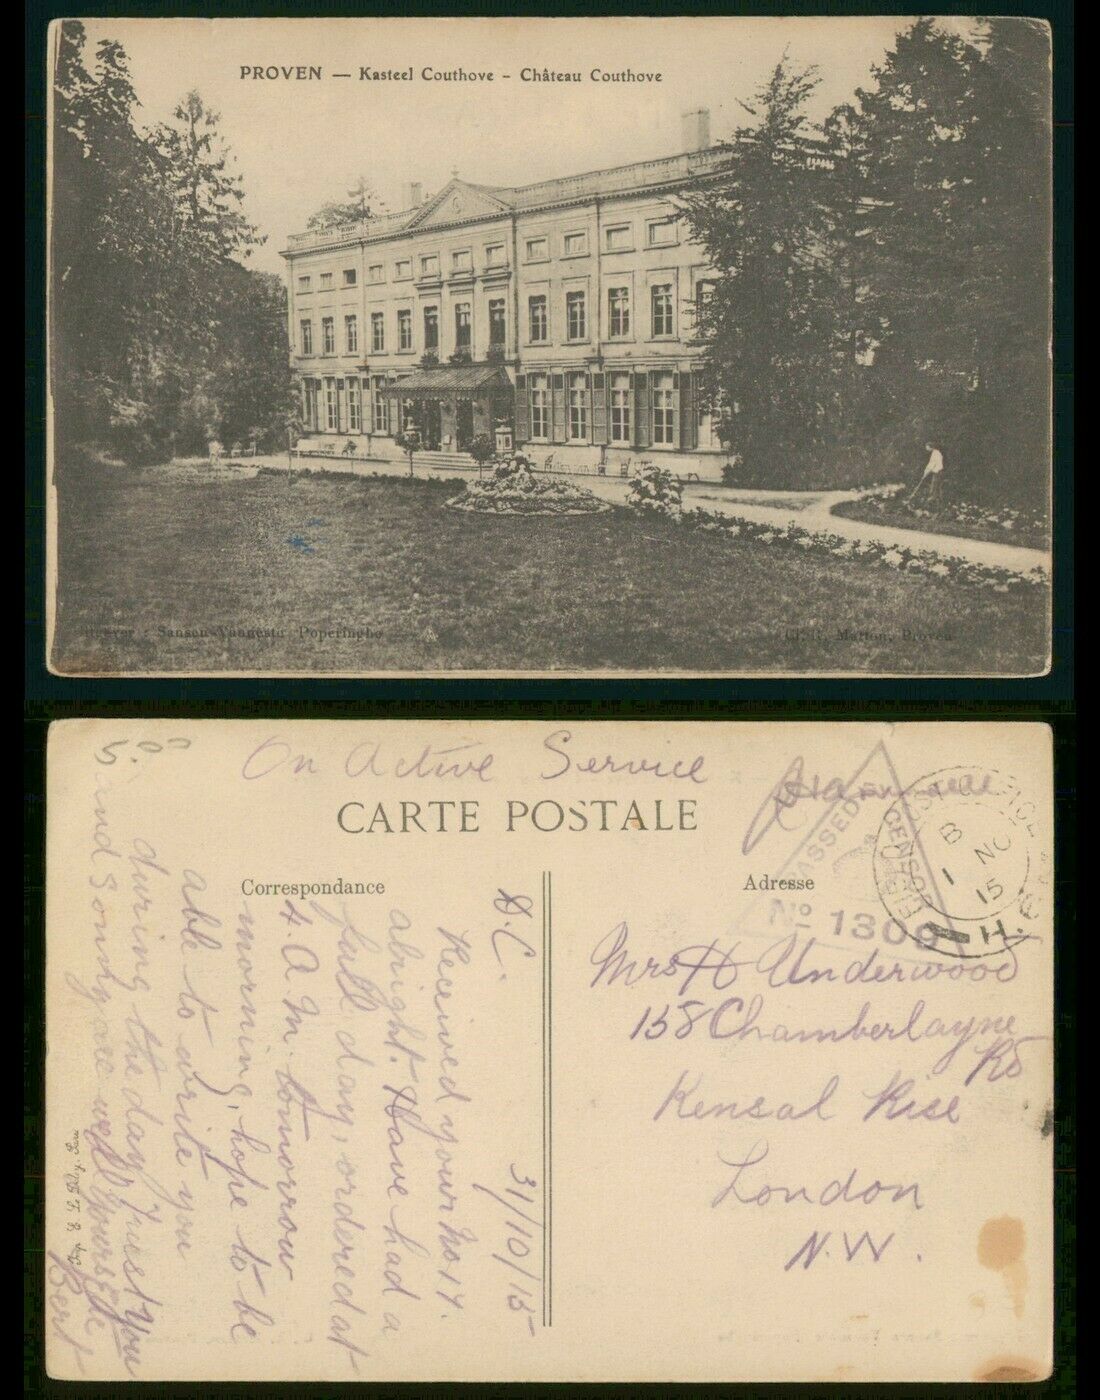 PROVEN — Kasteel Couthove - Château Couthove
Sansen-Vanneste Poperinghe
Matton, Proven
5.
On Active Service
CARTE POSTALE
Correspondance
Adresse
PASSED
CENSOR
No. 1300
FIELD POST OFFICE
B
1 NO
15
H.
D.C. 31/10/15
Received your No 14.
alright. Have had a
full day, ordered at
4. A.M. tomorrow
morning, hope to be
able to write you
during the day, trust you
and Sonny are well yourself
Bert
Mrs H Underwood
158 Chamberlayne
Rd
Kensal Rise
London
N.W.